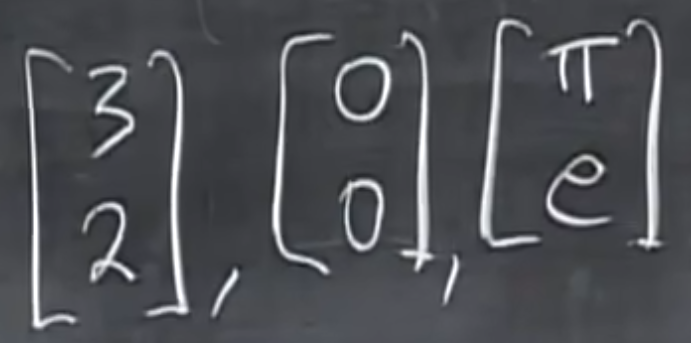 [3 2], [0 0], [π e]